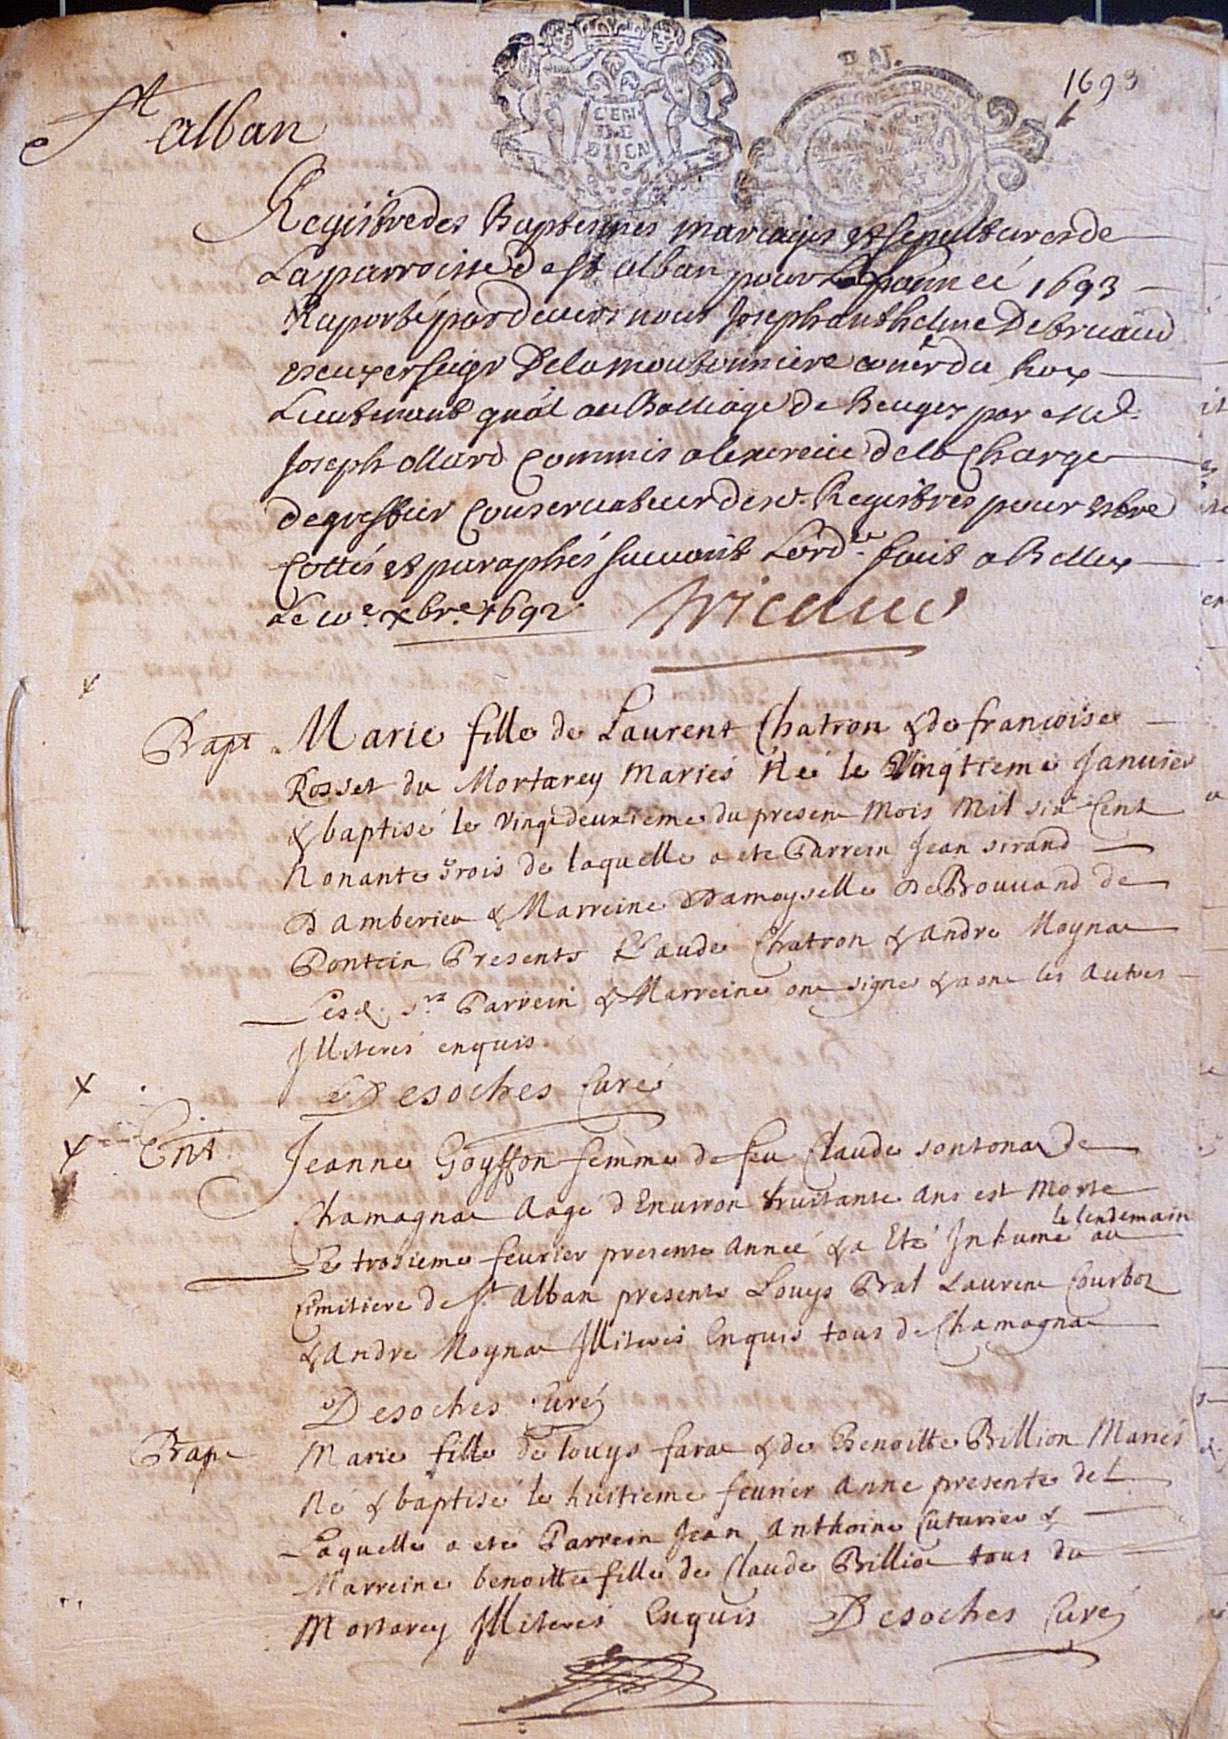 1693
St alban
Registre des Baptesmes mariages et sepultures de
La parroisse de St alban pour L'année 1693
Raporté pardevers nous Joseph anthelme De bruaud
escuyer seigr De la moutonniere coner du Roy
Lieutenant gñal au Balliage de Beugey par Me
Joseph ollard Commis a lexercice de la Charge
de greffier Conservateur desd. Registres pour estre
Cottés et paraphés suivant Lord.ce fait a Belley
Le xbre 1692
Bapt Marie fille de Laurent Chatron & de francoise
Rosset du Mortarey Mariés Né le Vingtieme Janvier
& baptisé le vingtdeuxieme du present Mois Mil six Cent
Nonante trois de laquelle a ete Parrein Jean sirand
D'amberieu & Marreine Damoyselle De Bouvand de
Pontein Presents Claude Chatron & andre Moyna
Lesd. srs Parrein & Marreine ont signe & non les autres
Illiterés enquis
Desoches Curé
Ent. Jeanne Goyffon femme de feu Claude sontona de
Chamagna Aagé d'Environ huittante Ans est Morte
Le troisieme fevrier presente Année & a Eté Inhumé le lendemain au
Cimitiere de St alban presents Louys Bral Laurent Courboz
& Andre Moyna Illiterés Enquis tous de Chamagna
Desoches Curé
Bapt Marie fille de louys fara & de Benoitte Billion Mariés
Né & baptisé le huitieme fevrier Anne presente de
Laquelle a eté Parrein Jean Anthoine Cuturier &
Marreine benoitte fille de Claude Billio tous du
Mortarey Illiterés Enquis Desoches Curé